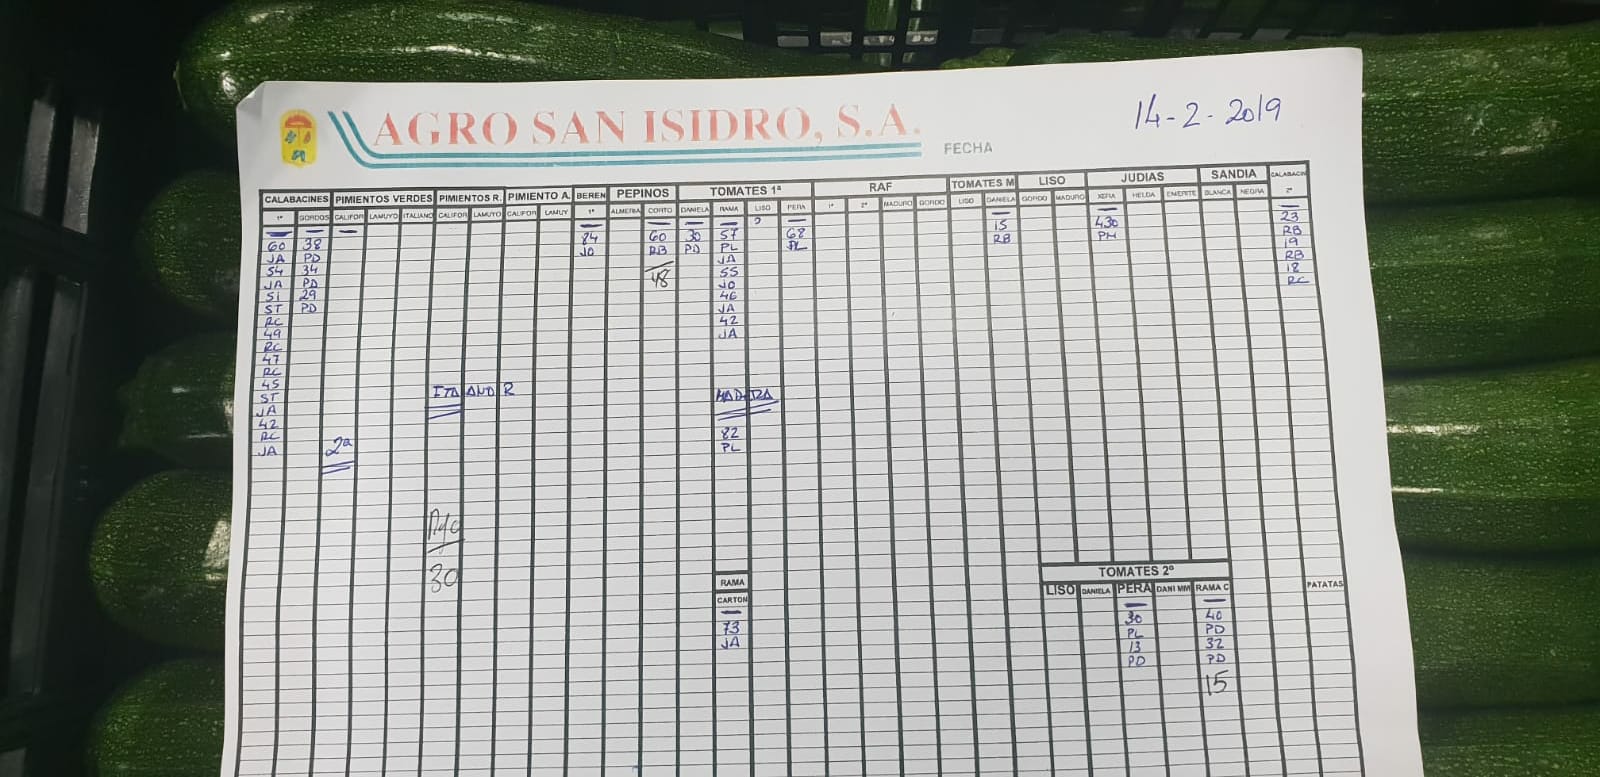 AGRO SAN ISIDRO, S.A.
FECHA 14-2-2019
CALABACINES PIMIENTOS VERDES PIMIENTOS R. PIMIENTO A. BEREN PEPINOS TOMATES 1ª RAF TOMATES M LISO JUDIAS SANDIA CALABACIN
1ª GORDOS CALIFOR LAMUYO ITALIANO CALIFOR LAMUYO CALIFOR LAMUY 1ª ALMERIA CORTO DANIELA RAMA LISO PERA 1ª 2ª MADURO GORDO LISO DANIELA GORDO MADURO XERA HELDA EMERITE BLANCA NEGRA 2ª
60 38 84 60 30 57 68 15 430 23
JA PD JO RB PD PL PL RB PM RB
54 34 48 JA 19
JA PD 55 RB
51 29 JO 18
ST PD 46 RC
RC JA
49 42
RC JA
47
RC
45 ITALIANO R MADURA
ST
JA
42 82
RC 2ª PL
JA
30
RAMA
CARTON
73
JA
TOMATES 2º
LISO DANIELA PERA DANI MM RAMA C PATATAS
30 40
PL PD
13 32
PD PD
15